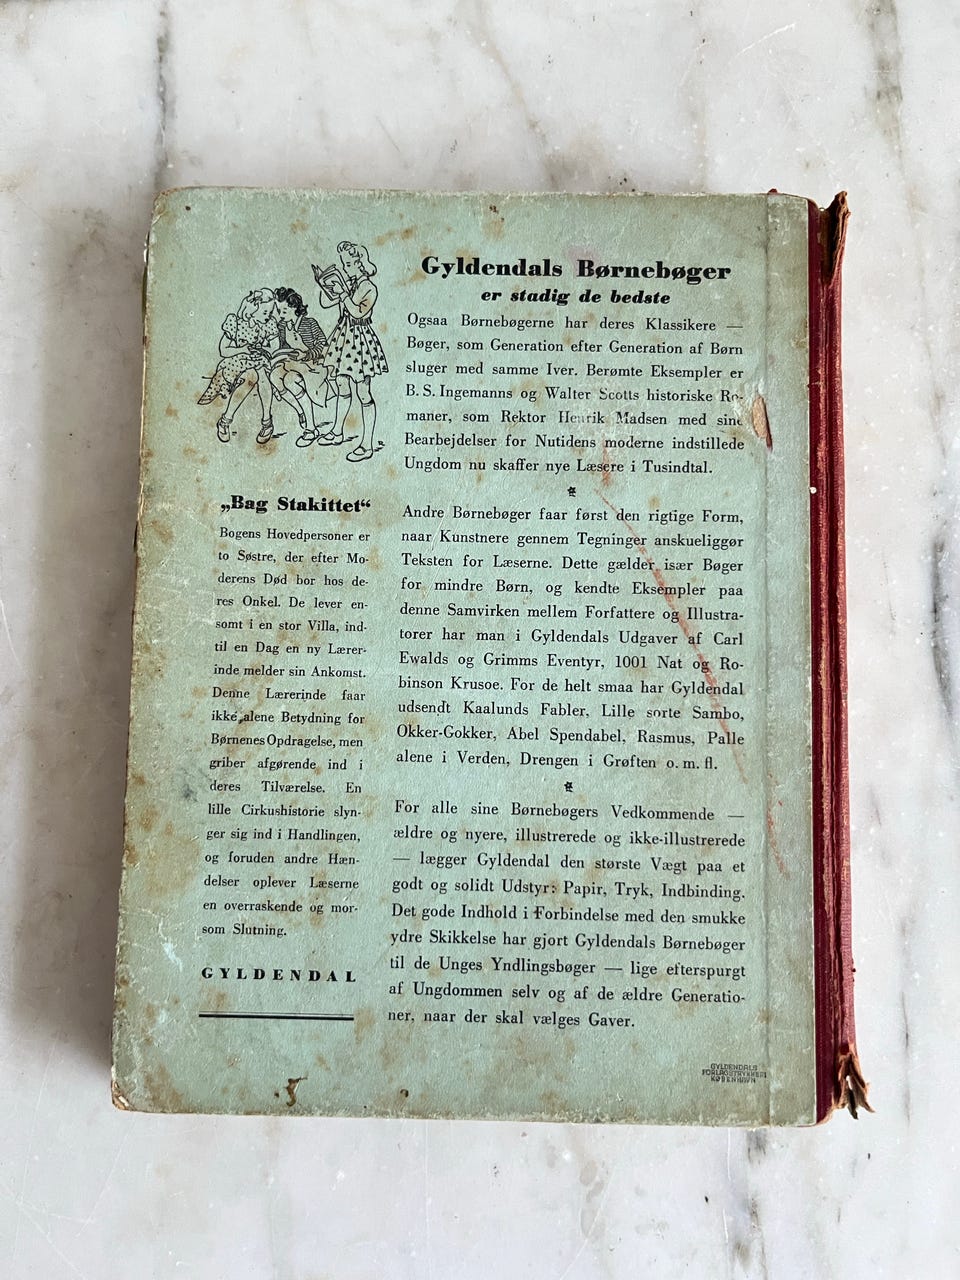 Gyldendals Børnebøger
er stadig de bedste
Ogsaa Børnebøgerne har deres Klassikere —
Bøger, som Generation efter Generation af Børn
sluger med samme Iver. Berømte Eksempler er
B. S. Ingemanns og Walter Scotts historiske Ro-
maner, som Rektor Henrik Madsen med sine
Bearbejdelser for Nutidens moderne indstillede
Ungdom nu skaffer nye Læsere i Tusindtal.
Andre Børnebøger faar først den rigtige Form,
naar Kunstnere gennem Tegninger anskueliggør
Teksten for Læserne. Dette gælder især Bøger
for mindre Børn, og kendte Eksempler paa
denne Samvirken mellem Forfattere og Illustra-
torer har man i Gyldendals Udgaver af Carl
Ewalds og Grimms Eventyr, 1001 Nat og Ro-
binson Krusoe. For de helt smaa har Gyldendal
udsendt Kaalunds Fabler, Lille sorte Sambo,
Okker-Gokker, Abel Spendabel, Rasmus, Palle
alene i Verden, Drengen i Grøften o. m. fl.
For alle sine Børnebøgers Vedkommende —
ældre og nyere, illustrerede og ikke-illustrerede
— lægger Gyldendal den største Vægt paa et
godt og solidt Udstyr: Papir, Tryk, Indbinding.
Det gode Indhold i Forbindelse med den smukke
ydre Skikkelse har gjort Gyldendals Børnebøger
til de Unges Yndlingsbøger — lige efterspurgt
af Ungdommen selv og af de ældre Generatio-
ner, naar der skal vælges Gaver.
„Bag Stakittet“
Bogens Hovedpersoner er
to Søstre, der efter Mo-
derens Død bor hos de-
res Onkel. De lever en-
somt i en stor Villa, ind-
til en Dag en ny Lærer-
inde melder sin Ankomst.
Denne Lærerinde faar
ikke alene Betydning for
Børnenes Opdragelse, men
griber afgørende ind i
deres Tilværelse. En
lille Cirkushistorie slyn-
ger sig ind i Handlingen,
og foruden andre Hæn-
delser oplever Læserne
en overraskende og mor-
som Slutning.
GYLDENDAL
GYLDENDALS
FORLAGSTRYKKERI
KØBENHAVN